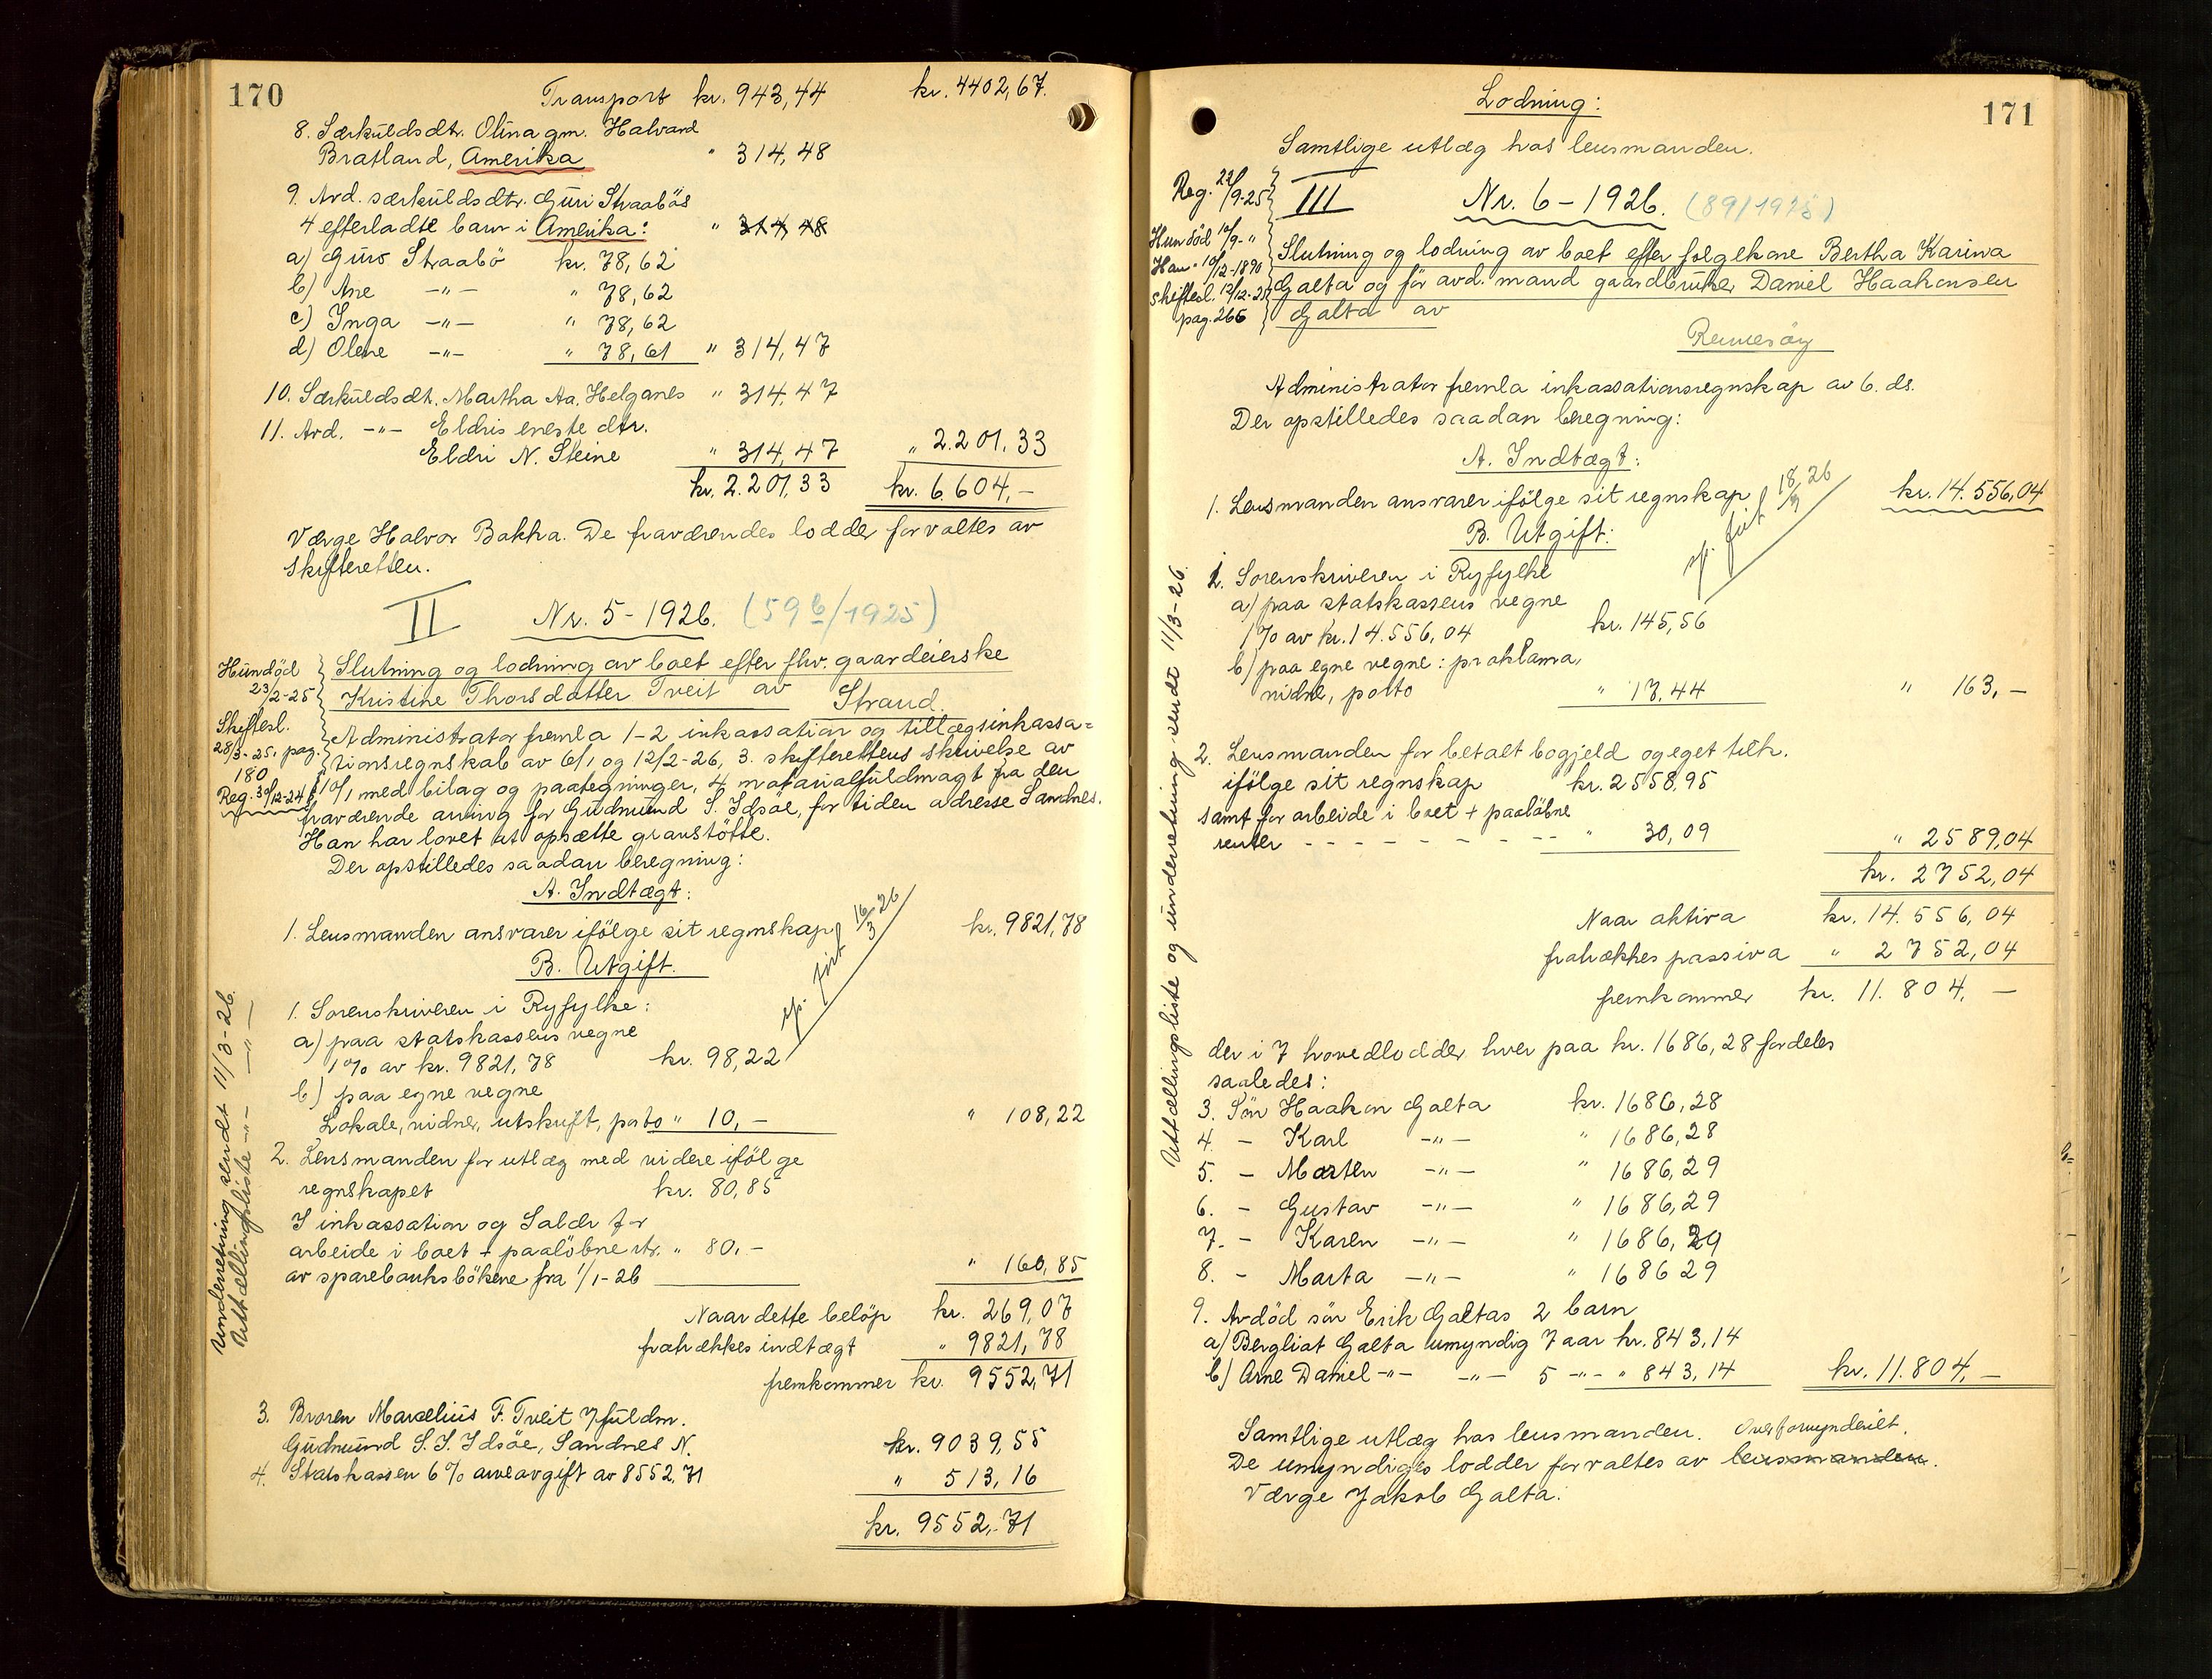 170
Transport kr. 943,44 kr. 4402,67.
8. Særkuldsdtr. Olina gm. Halvard
Bratland, Amerika " 314,48
9. Avd. særkuldsdtr. Guri Straabös
4 efterladte barn i Amerika: " 314,48
a) Guro Straabö kr. 78,62
b) Ane -"- " 78,62
c) Inga -"- " 78,62
d) Olene -"- " 78,61 " 314,47
10. Særkuldsdt. Martha Aa. Helganes " 314,47
11. Avd. -"- Eldris eneste dtr.
Eldri N. Steine " 314,47 " 2.201,33
kr. 2.201,33 kr. 6.604,-
Værge Halvor Bakka. De fraværendes lodder forvaltes av
skifteretten.
II Nr. 5 - 1926. (59b/1925)
Hun död 23/2-25
Skiftesl. 28/3-25, pag. 180
Reg. 30/12-24
Slutning og lodning av boet efter fhv. gaardeierske
Kristine Thorsdatter Tveit av Strand.
Administrator fremla 1-2 inkassation og tillægsinkassa=
tionsregnskab av 6/1 og 12/2-26, 3. skifterettens skrivelse av
10/1 med bilag og paategninger, 4 notarialfuldmagt fra den
fraværende arving for Gudmund S. Idsöe, for tiden adresse Sandnes.
Han har lovet at opsætte gravstötte.
Der opstilledes saadan beregning:
A. Indtægt:
1. Lensmanden ansvarer ifölge sit regnskap kr. 9821,78
sp. fört 16/3 26
B. Utgift.
1. Sorenskriveren i Ryfylke:
a) paa statskassens vegne
1% av kr. 9821,78 kr. 98,22
b) paa egne vegne
Lokale, vidner, utskrift, porto " 10,- " 108,22
2. Lensmanden for utlæg med videre ifölge
regnskapet kr. 80,85
I inkassation og Salær for
arbeide i boet + paalöbne rtr. " 80,-
av sparebanksbökene fra 1/1-26 " 160,85
Naar dette belöp kr. 269,07
fratrækkes indtægt " 9821,78
fremkommer kr. 9552,71
3. Broren Marselius F. Tveit v/fuldm.
Gudmund S. S. Idsöe, Sandnes N. kr. 9039,55
4. Statskassen 6% arveavgift av 8552,71 " 513,16
kr. 9552,71
Underretning sendt 11/3-26.
Uttællingsliste -"- -"-
171
Lodning:
Samtlige utlæg hos lensmanden.
III Nr. 6 - 1926. (89/1925)
Reg. 22/9-25
Hun död 10/9-"
Han - 10/12-1890
Skiftesl. 12/12-25
pag. 266
Slutning og lodning av boet efter folgekone Bertha Karina
Galta og för avd. mand gaardbruker Daniel Haakonsen
Galta av
Rennesöy
Administrator fremla inkassationsregnskap av 6. ds.
Der opstilledes saadan beregning:
A. Indtægt:
1. Lensmanden ansvarer ifölge sit regnskap kr. 14.556,04
sp. fört 18/3 26
B. Utgift:
1. Sorenskriveren i Ryfylke
a) paa statskassens vegne
1% av kr. 14.556,04 kr. 145,56
b) paa egne vegne: proklama,
vidne, porto " 17,44 " 163,-
2. Lensmanden for betalt bogjeld og eget tilk.
ifölge sit regnskap kr. 2558,95
samt for arbeide i boet + paalöbne
renter - - - - - - - - " 30,09 " 2589,04
kr. 2752,04
Naar aktiva kr. 14.556,04
fratrækkes passiva " 2752,04
fremkommer kr. 11.804,-
der i 7 hovedlodder hver paa kr. 1686,28 fordeles
saaledes:
3. Sön Haakon Galta kr. 1686,28
4. - Karl -"- " 1686,28
5. - Marten -"- " 1686,29
6. - Gustav -"- " 1686,29
7. - Karen -"- " 1686,29
8. - Marta -"- " 1686 29
9. Avdöd sön Erik Galtas 2 barn
a) Bergliot Galta umyndig 7 aar kr. 843,14
b) Arne Daniel -"- -"- 5 -"- " 843,14 kr. 11.804,-
Samtlige utlæg hos lensmanden. Overformynderiet.
De umyndiges lodder forvaltes av lensmanden.
Værge Jakob Galta.
Uttællingsliste og underretning sendt 11/3-26.